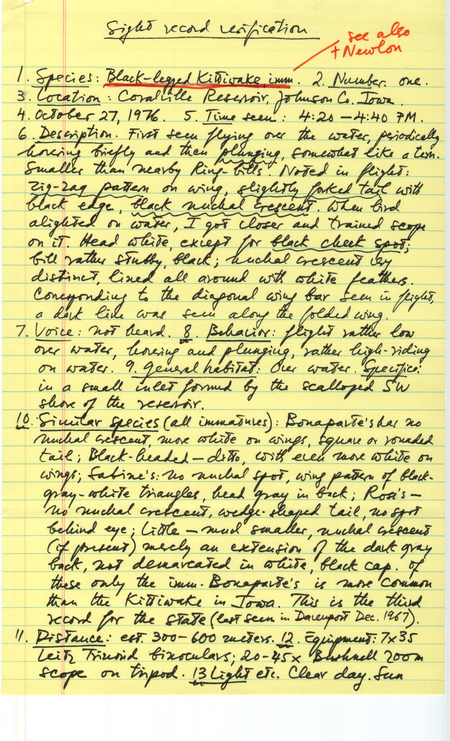 Sight record verification
see also
+ Newlon
1. Species: Black-legged Kittiwake, imm. 2. Number: one.
3. Location: Coralville Reservoir, Johnson Co. Iowa.
4. October 27, 1976. 5. Time seen: 4:20 - 4:40 PM.
6. Description. First seen flying over the water, periodically
hovering briefly and then plunging, somewhat like a tern.
Smaller than nearby Ring-bills. Noted in flight:
zig-zag pattern on wing, slightly forked tail with
black edge, black nuchal crescent. When bird
alighted on water, I got closer and trained scope
on it. Head white, except for black cheek spot;
bill rather stubby, black; nuchal crescent
distinct, lined all around with white feathers.
Corresponding to the diagonal wing bar seen in flight,
a dark line was seen along the folded wing.
7. Voice: not heard. 8. Behavior: flight rather low
over water, hovering and plunging, rather high-riding
on water. 9. General habitat: Over water. Specific:
in a small inlet formed by the scalloped SW
shore of the reservoir.
10. Similar species (all immatures): Bonaparte's has no
nuchal crescent, more white on wings, square or rounded
tail; Black-headed - ditto, with even more white on
wings; Sabine's: no nuchal spot, wing pattern of black-
gray-white triangles, head gray in back; Ross's -
no nuchal crescent, wedge-shaped tail, no spot
behind eye; Little - much smaller, nuchal crescent
(if present) merely an extension of the dark gray
back, not demarcated in white, black cap. Of
these only the imm. Bonaparte's is more common
than the Kittiwake in Iowa. This is the third
record for the state (last seen in Davenport Dec. 1967).
11. Distance: est. 300-600 meters. 12. Equipment: 7x35
Leitz Trinovid binoculars; 20-45x Bushnell zoom
scope on tripod. 13 Light etc. Clear day. Sun